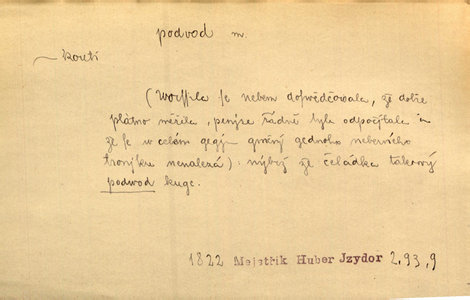 podvod m.
~ kouti
(Worſſila ſe nebem doſwědčowala, že dobře
plátno měřila, penjze řádně byla odpočjtala a
že ſe w celém gegjm gměnj gednoho neberného
tronjku nenalezá): nýbrž že čeládka takowý
podwod kuge.
1822 Mejstřik Huber Jzydor 2,93,9